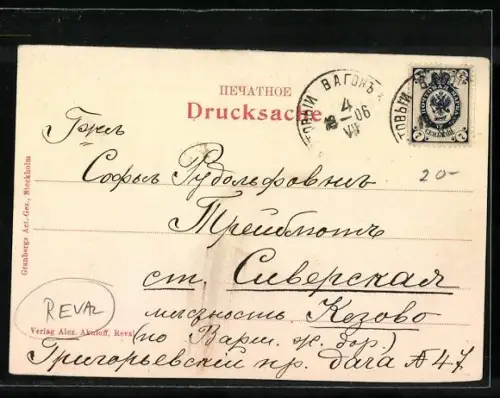 ПЕЧАТНОЕ
Drucksache
ТОВЫЙ ВАГОНЪ
4
06
VII
ТОВЫЙ В
20-
Гжѣ
Софьѣ Рудольфовнѣ
Трейблютъ
ст. Сиверская
мѣстность Кезово
(по Варш. ж. дор.)
Григорьевскій пр. дача № 47
REVAL
Granbergs Art.-Ges., Stockholm
Verlag Alex. Akuloff, Reval